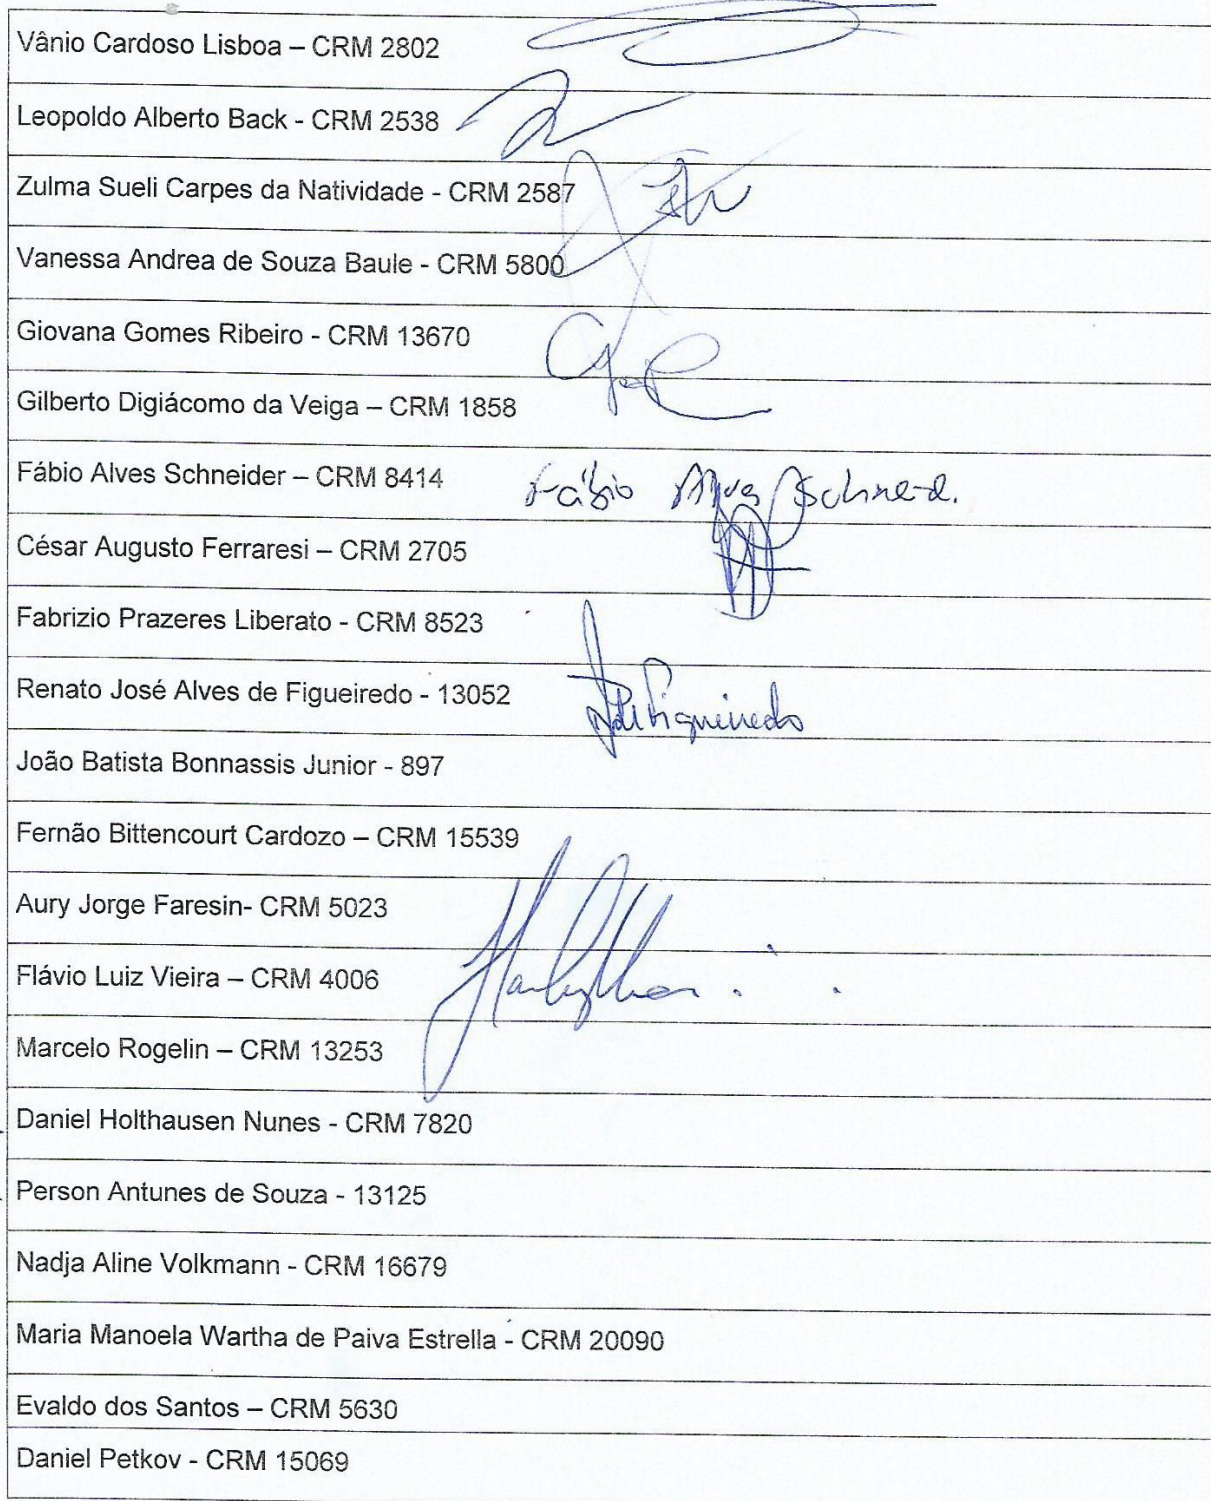 Vânio Cardoso Lisboa – CRM 2802
Leopoldo Alberto Back - CRM 2538
Zulma Sueli Carpes da Natividade - CRM 2587
Vanessa Andrea de Souza Baule - CRM 5800
Giovana Gomes Ribeiro - CRM 13670
Gilberto Digiácomo da Veiga – CRM 1858
Fábio Alves Schneider – CRM 8414
Fábio Alves
César Augusto Ferraresi – CRM 2705
Fabrizio Prazeres Liberato - CRM 8523
Renato José Alves de Figueiredo - 13052
Figueiredo
João Batista Bonnassis Junior - 897
Fernão Bittencourt Cardozo – CRM 15539
Aury Jorge Faresin- CRM 5023
Flávio Luiz Vieira – CRM 4006
Marcelo Rogelin – CRM 13253
Daniel Holthausen Nunes - CRM 7820
Person Antunes de Souza - 13125
Nadja Aline Volkmann - CRM 16679
Maria Manoela Wartha de Paiva Estrella - CRM 20090
Evaldo dos Santos – CRM 5630
Daniel Petkov - CRM 15069